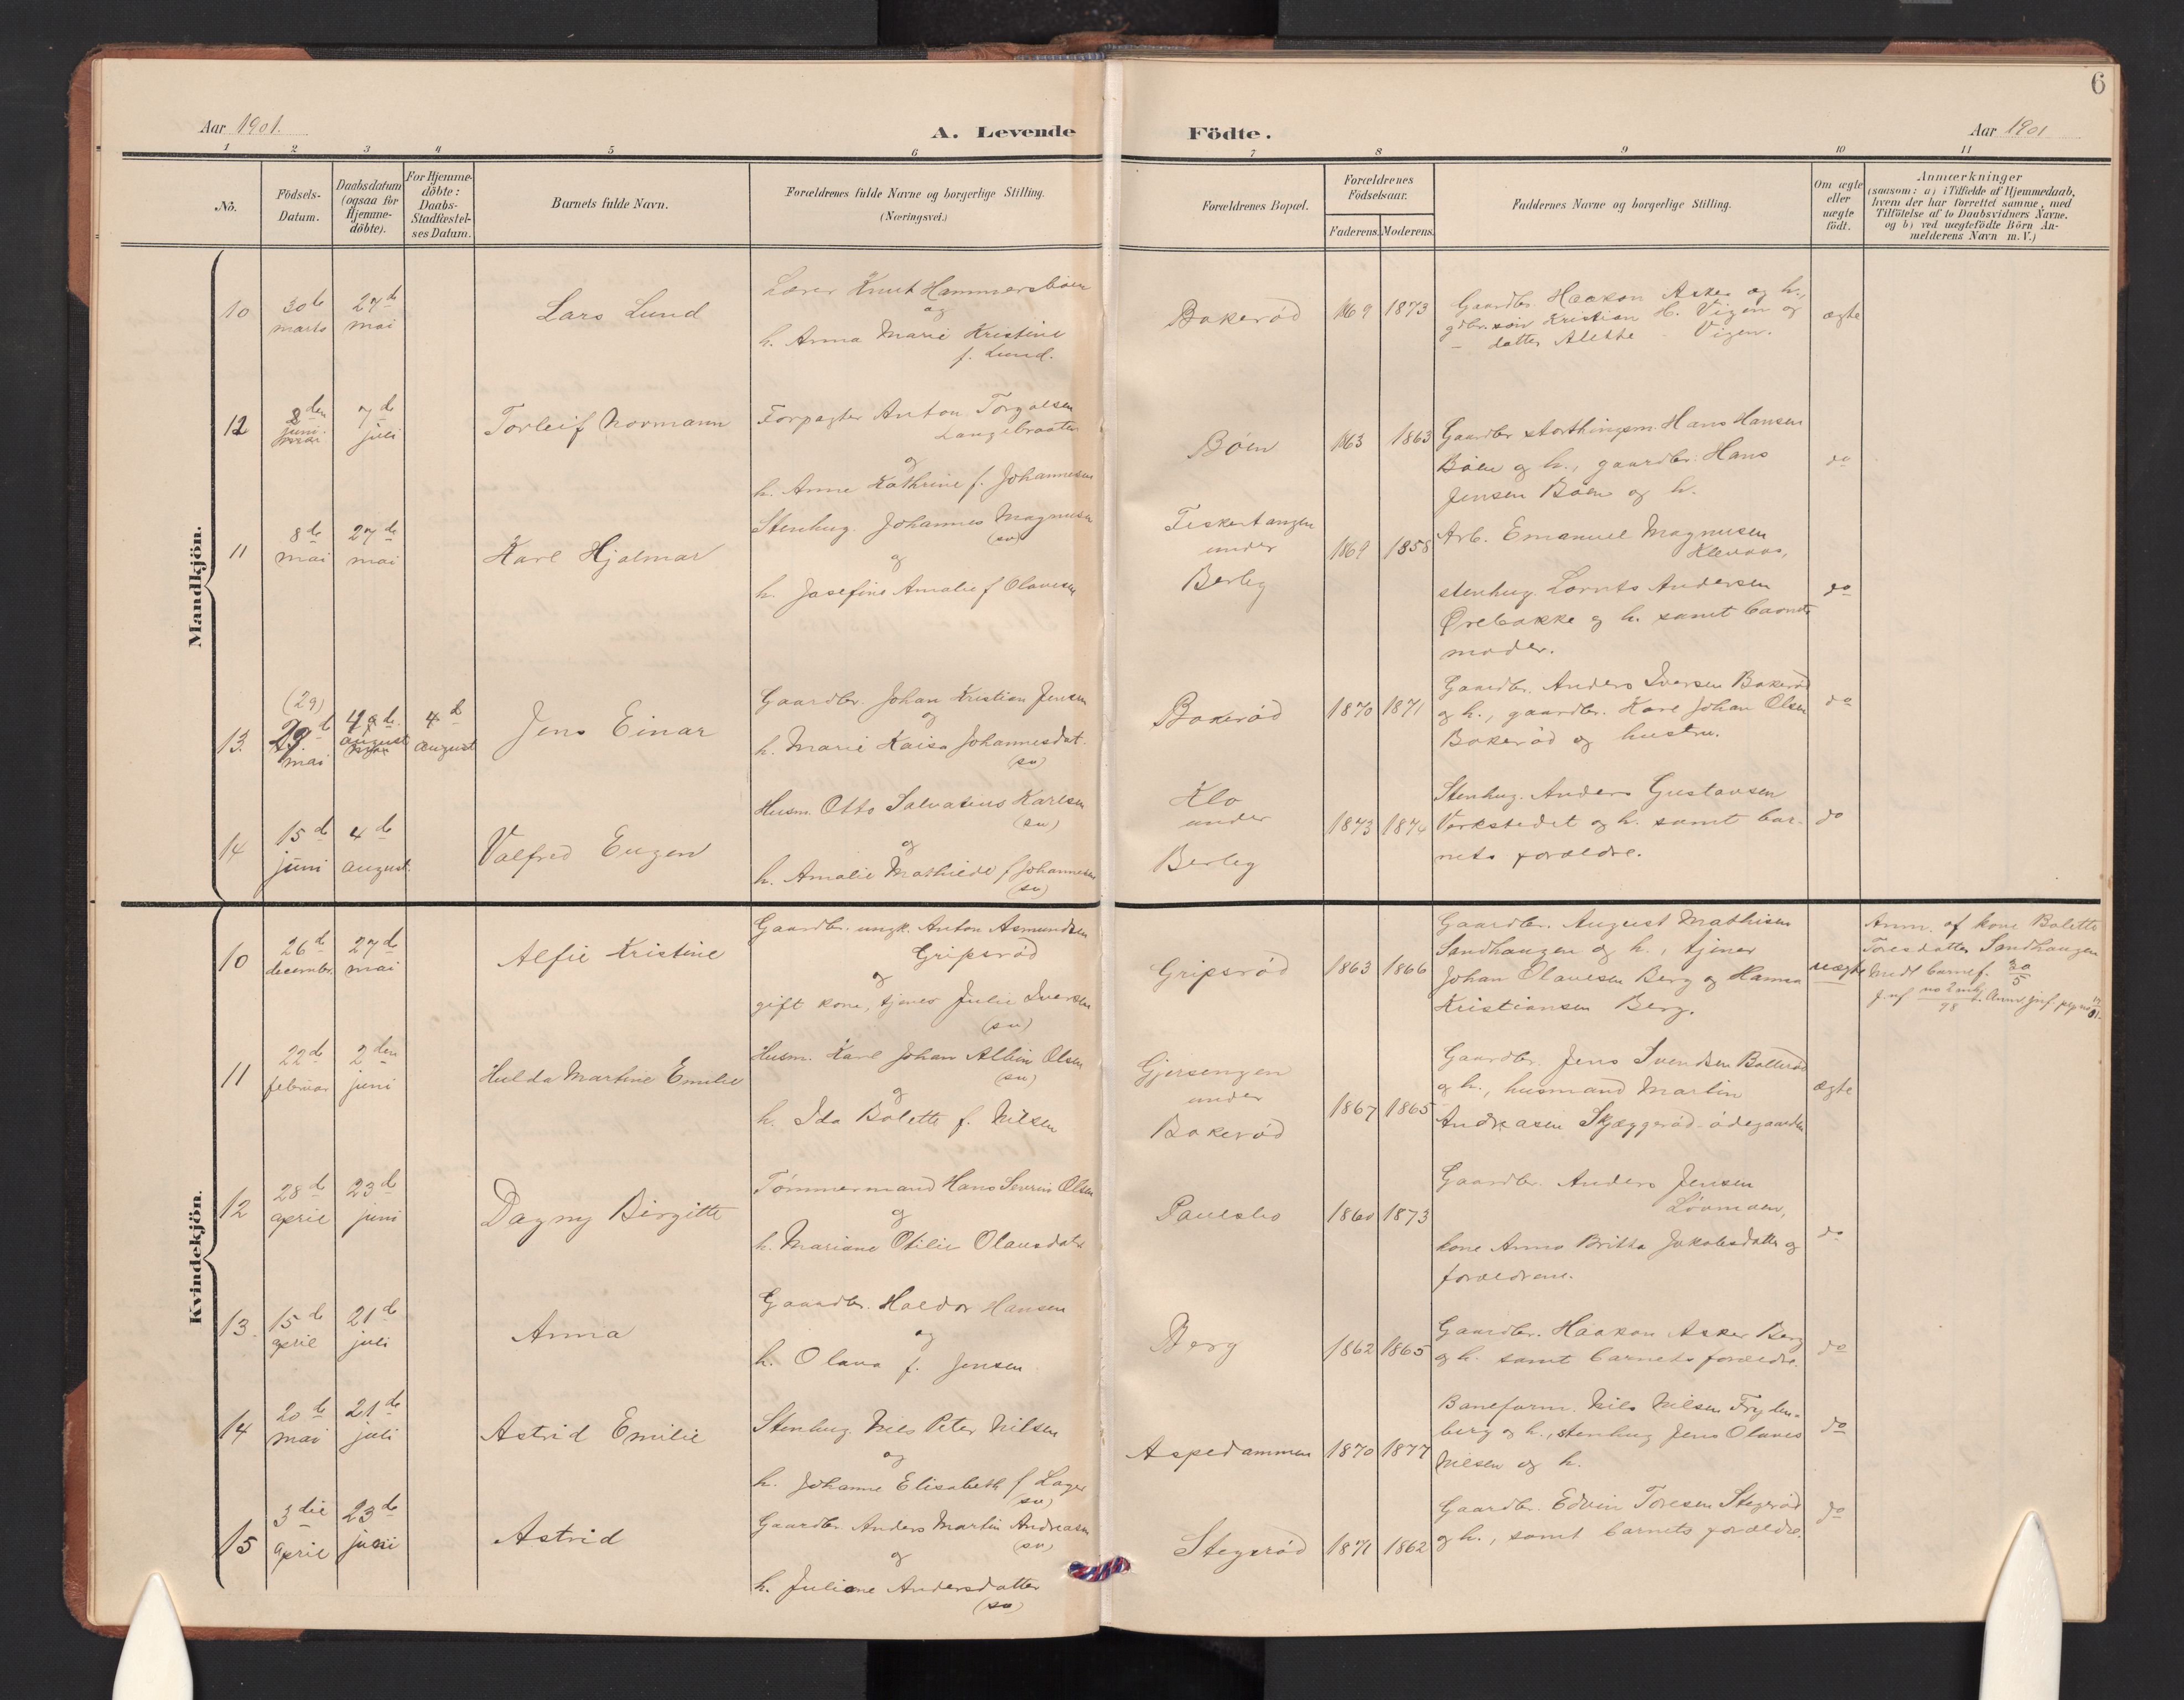 6
Aar 1901.
A. Levende Födte.
Aar 1901
1 2 3 4 5 6 7 8 9 10 11
No.
Födsels-
Datum.
Daabsdatum
(ogsaa for
Hjemme-
döbte).
For Hjemme-
döbte:
Daabs-
Stadfæstel-
ses Datum.
Barnets fulde Navn.
Forældrenes fulde Navne og borgerlige Stilling.
(Næringsvei.)
Forældrenes Bopæl.
Forældrenes
Födselsaar.
Faderens. Moderens.
Faddernes Navne og borgerlige Stilling.
Om ægte
eller
uægte
födt.
Anmærkninger
(saasom: a) i Tilfælde af Hjemmedaab,
hvem der har forrettet samme, med
Tilföielse af to Daabsvidners Navne.
og b) ved uægtefödte Börn An-
melderens Navn m. V.)
Mandkjön.
10
30de
marts
27de
mai
Lars Lund
Lærer Knut Hammersbøen
og
h. Anna Marie Kristine
f. Lund.
Bakerød
1869 1873
Gaardbr. Haakon Asker og h.,
gdbr. søn Kristian H. Vigen og
– datter Alethe Vigen.
ægte
12
8den
juni
7de
juli
Torleif Normann
Forpagter Anton Torgalsen
Langebraaten
og
h. Anne Kathrine f. Johannesen
Bøen
1863 1863
Gaardbr. storthingsm. Hans Hansen
Bøen og h., gaardbr. Hans
Jensen Bøen og h.
do
11
8de
mai
27de
mai
Karl Hjalmar
Stenhug. Johannes Magnusen
(sv)
og
h. Josefine Amalie f Olavesen
Fiskertangen
under
Berby
1869 1858
Arb. Emanuel Magnusen
Klevaas,
stenhug. Lornts Andersen
Ørebakke og h. samt barnets
moder.
do
13.
(29)
29de
mai
4de
august
4de
august
Jens Einar
Gaardbr. Johan Kristian Jensen
og
h. Marie Kaisa Johannesdat.
(sv)
Bakerød
1870 1871
Gaardbr. Anders Iversen Bakerød
og h., gaardbr. Karl Johan Olsen
Bakerød og hustru.
do
14
15de
juni
4de
august.
Valfred Eugen
Husm. Otto Salvatius Karlsen
(sv)
og
h. Amalie Mathilde f Johannesen
(sv)
Klo
under
Berby
1873 1874
Stenhug. Anders Gustavsen
Verkstedet og h. samt bar-
nets forældre.
do
Kvindekjön.
10
26de
decembr.
27de
mai
Alfie Kristine
Gaardbr. ungk. Anton Asmundsen
Gripsrød
og
gift kone, tjener Julie Iversen
(sv)
Gripsrød
1863 1866
Gaardbr. August Mathisen
Sandhaugen og h., tjener
Johan Olavesen Berg og Hanna
Kristiansen Berg.
uægte
Anm. af kone Bolette
Toresdatter Sandhaugen
Medt barnef. 30/5
11
22de
februar
2den
juni
Hulda Martine Emilie
Husm. Karl Johan Albin Olsen
(sv)
og
h. Ida Bolette f. Nilsen
Gjersengen
under
Bakerød
1867 1865
Gaardbr. Jens Svendsen Bollerød
og h., husmand Martin
Andreasen Skjæggerød-ødegaarden
ægte
12
28de
april
23de
juni
Dagny Birgitte
Tømmermand Hans Severin Olsen
og
h. Mariane Otilie Olausdatr
Paulsbo
1860 1873
Gaardbr. Anders Jensen
Løvmoen,
kone Anna Britta Jakobsdatter og
forældrene.
do
13.
15de
april
21de
juli
Anna
Gaardbr. Haldor Hansen
og
h. Olava f. Jensen
Berg
1862 1865
Gaardbr. Haakon Asker Berg
og h. samt barnets forældre.
do
14
20de
mai
21de
juli
Astrid Emilie
Stenhug. Nils Peter Nilsen
og
h. Johanne Elisabeth f Lager
(sv)
Aspedammen
1870 1877
Baneform. Nils Nilsen Fryden-
berg og h., stenhug Jens Olaves
Nilsen og h.
do
15
3die
april
23de
juni
Astrid
Gaardbr. Anders Martin Andreasen
(sv)
og
h. Juliane Andersdatter
(sv)
Stegerød
1871 1862
Gaardbr. Edvin Toresen Stegerød
og h., samt barnets forældre.
do